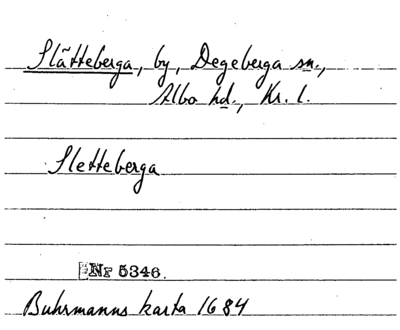 Slätteberga, by, Degeberga sn.,
Albo hd., Kr. l.
Sletteberga
Nr 5346.
Buhrmanns karta 1684